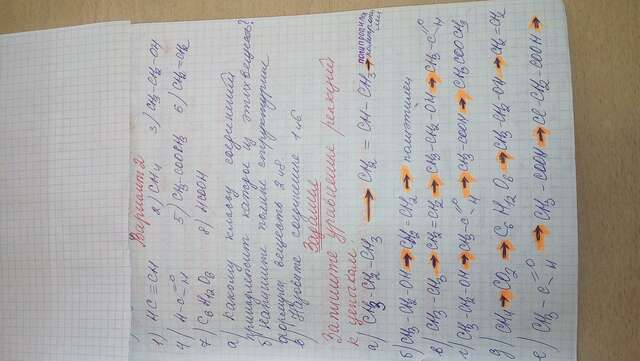 Вариант 2
1) HC≡CH 2) CH4 3) CH3-CH2-OH
4) H-C=O H 5) CH3-COOCH3 6) CH2=CH2
7) C6H12O6 8) HCOOH
а) какому классу соединений
принадлежит каждое из этих веществ?
б) напишите полные структурные
формулы веществ 2 и 8.
в) Назовите соединение 1 и 6
Задание
Запишите уравнение реакций
к цепочкам.
а) CH3-CH2-CH3 → CH2=CH-CH3 → полипропилен
б) CH3-CH2-OH → CH2=CH2 → полиэтилен
в) CH3-CH3 → CH2=CH2 → CH3-CH2-OH → CH3-C=O H
г) CH3-CH2-OH → CH3-C=O H → CH3-COOH → CH3COOCH3
д) CH4 → CO2 → C6H12O6 → CH3-CH2-OH → CH2=CH2
е) CH3-C=O H → CH3-COOH → Cl-CH2-COOH →